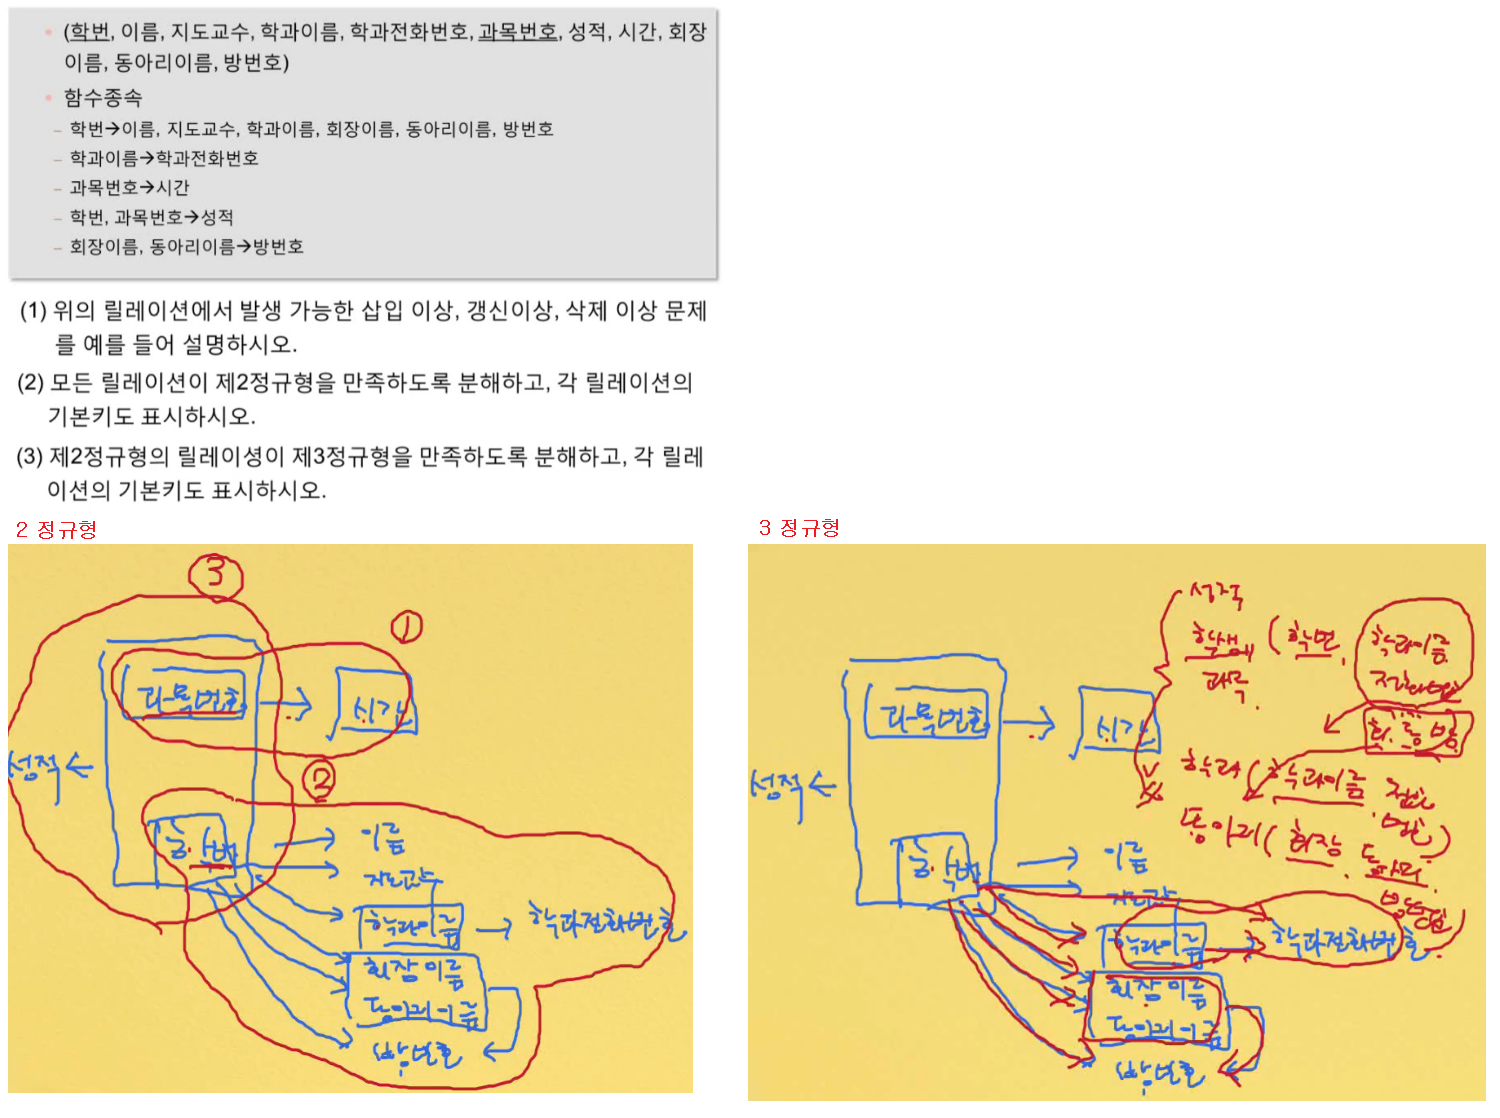 • (학번, 이름, 지도교수, 학과이름, 학과전화번호, 과목번호, 성적, 시간, 회장
이름, 동아리이름, 방번호)
• 함수종속
– 학번→이름, 지도교수, 학과이름, 회장이름, 동아리이름, 방번호
– 학과이름→학과전화번호
– 과목번호→시간
– 학번, 과목번호→성적
– 회장이름, 동아리이름→방번호
(1) 위의 릴레이션에서 발생 가능한 삽입 이상, 갱신이상, 삭제 이상 문제
를 예를 들어 설명하시오.
(2) 모든 릴레이션이 제2정규형을 만족하도록 분해하고, 각 릴레이션의
기본키도 표시하시오.
(3) 제2정규형의 릴레이셩이 제3정규형을 만족하도록 분해하고, 각 릴레
이션의 기본키도 표시하시오.
2 정규형
③
①
과목번호 → 시간
성적 ←
②
학번
이름
지도교수
학과이름 → 학과전화번호
회장이름
동아리이름
방번호
3 정규형
성적
학생 (학번, 학과이름
과목
전화번호
회, 동, 방
학과 (학과이름 전화
번호)
동아리 (회장 동아리
방번호)
과목번호 → 시간
성적 ←
학번
이름
지도교수
학과이름 → 학과전화번호
회장이름
동아리이름
방번호